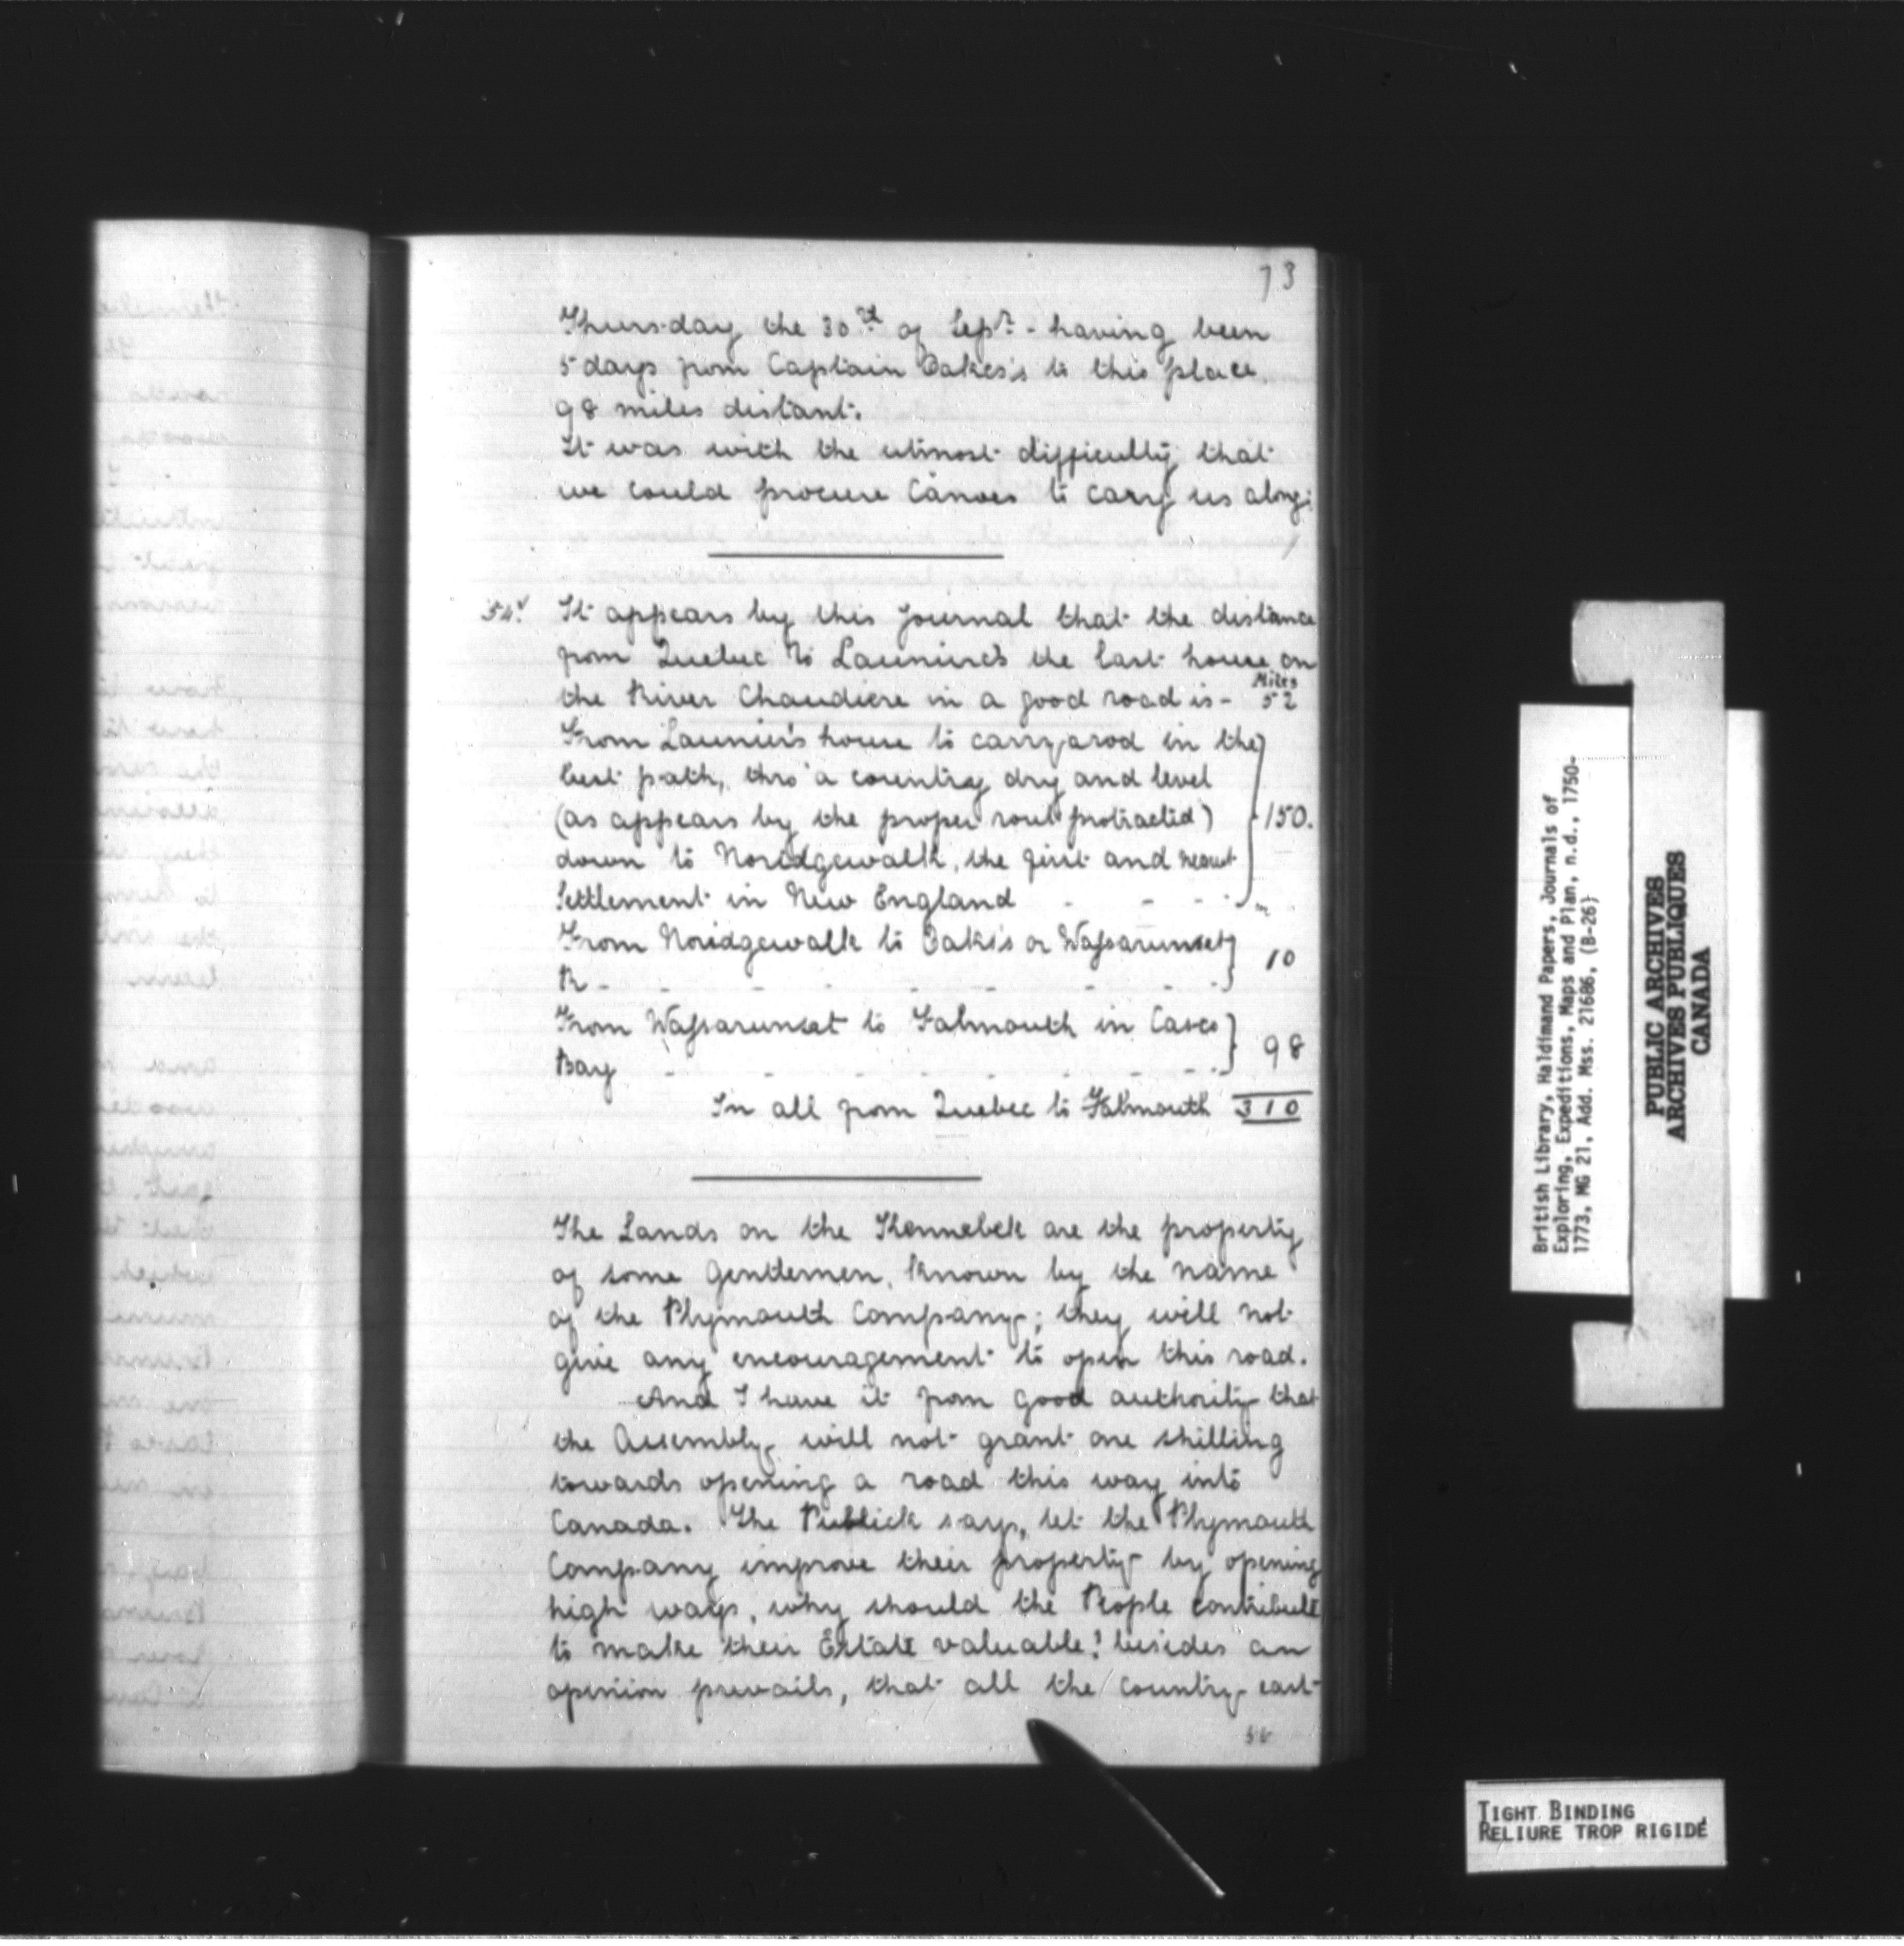 73
Thursday the 30th of Sepr. - having been
5 days from Captain Oakes's to this place
98 miles distant.
It was with the utmost difficulty that
we could procure Canoes to carry us along.
54v It appears by this Journal that the distance
from Quebec to Launiere's the last house on
Miles
the River Chaudiere in a good road is - 52
From Launier's house to carry a rod in the
best path, thro' a country dry and level
(as appears by the proper rout protracted) 150.
down to Noridgewalk, the first and nearest
Settlement in New England - - -
From Noridgewalk to Oake's or Wassarunset
R - - - - - - - - 10
From Wassarunset to Falmouth in Casco
Bay - - - - - - - 98
In all from Quebec to Falmouth 310
The Lands on the Kennebek are the property
of some Gentlemen, known by the name
of the Plymouth Company; they will not
give any encouragement to open this road.
And I have it from good authority that
the Assembly will not grant one shilling
towards opening a road this way into
Canada. The Publick say, let the Plymouth
Company improve their property by opening
high ways, why should the People contribute
to make their Estate valuable! besides an
opinion prevails, that all the country east-
British Library, Haldimand Papers, Journals of
Exploring, Expeditions, Maps and Plan, n.d., 1750-
1773, MG 21, Add. Mss. 21686, (B-26)
PUBLIC ARCHIVES
ARCHIVES PUBLIQUES
CANADA
TIGHT BINDING
RELIURE TROP RIGIDE